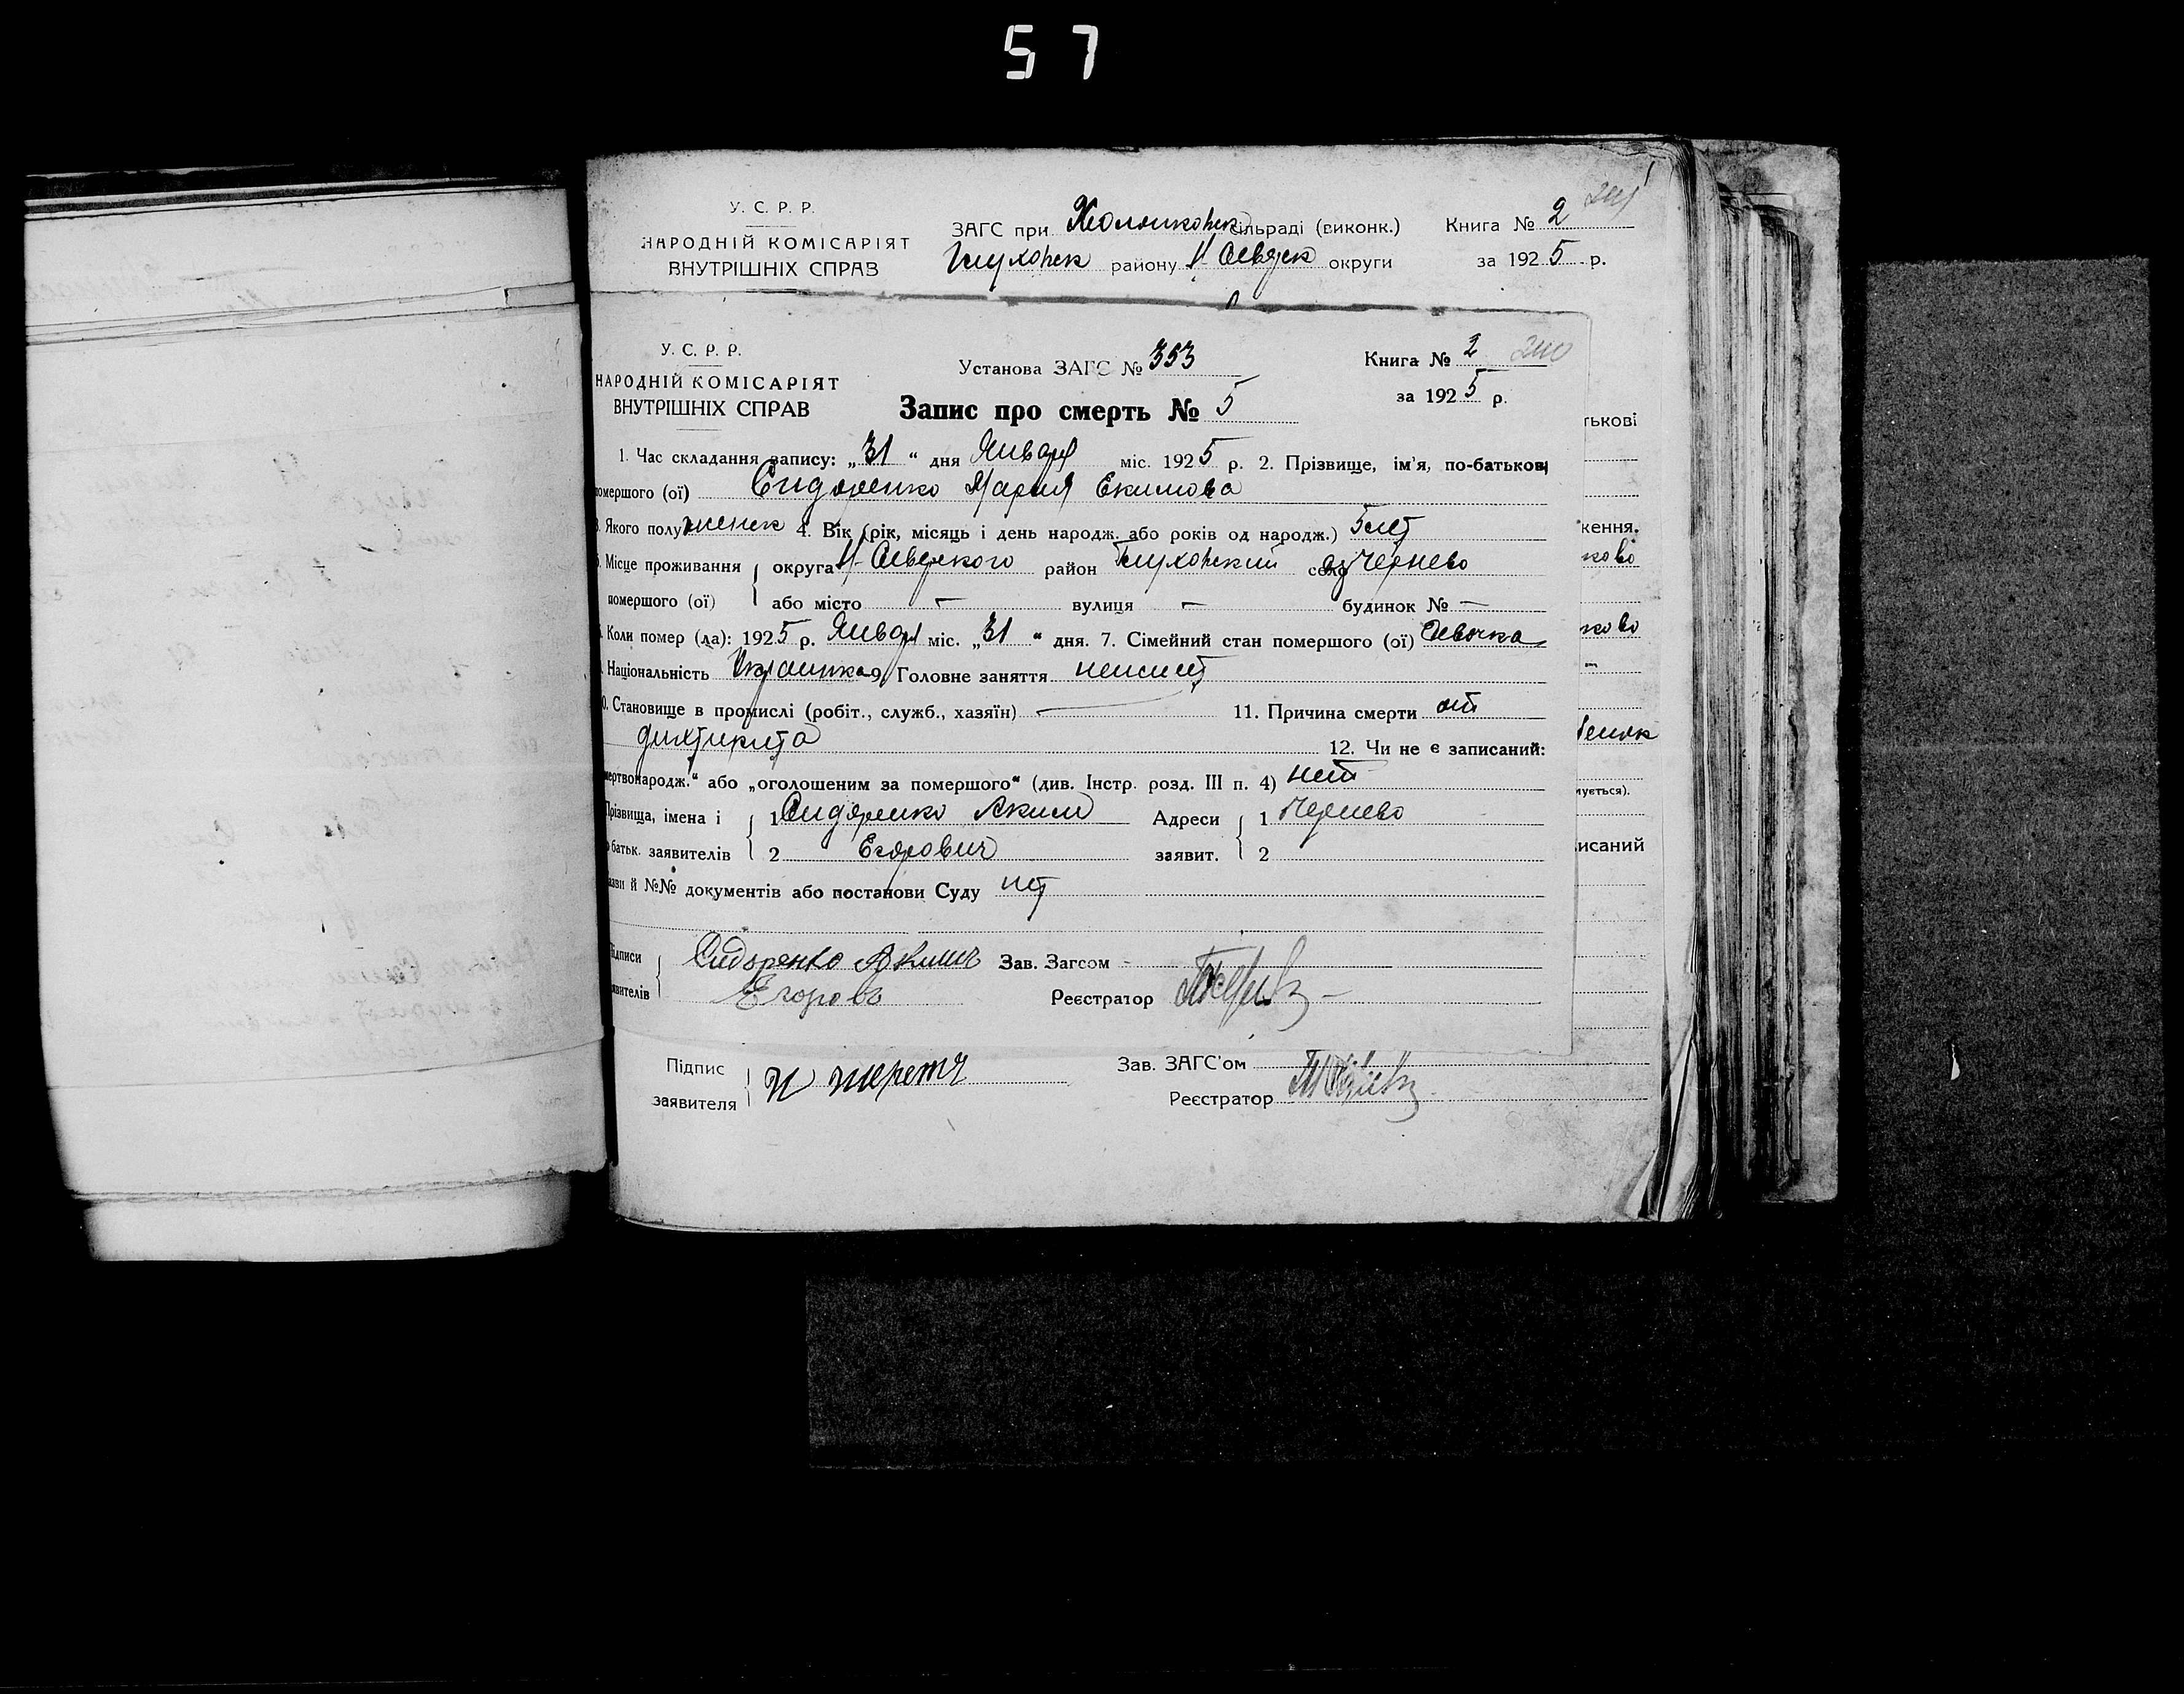 57
У. С. Р. Р.
НАРОДНІЙ КОМІСАРІЯТ
ВНУТРІШНІХ СПРАВ
ЗАГС при сільраді (виконк.)
Глуховск району Н Севрск округи
Книга № 2
за 1925 р.
У. С. Р. Р.
НАРОДНІЙ КОМІСАРІЯТ
ВНУТРІШНІХ СПРАВ
Установа ЗАГС № 353
Запис про смерть № 5
Книга № 2 240
за 1925 р.
1. Час складання запису: „31“ дня Января міс. 1925 р. 2. Прізвище, ім'я, по-батькові
помершого (ої) Сидоренко Мария Екимова
Якого полу женск 4. Вік (рік, місяць і день народж. або років од народж.) 5 лет
Місце проживання округа Н-Северского район Глуховский село Чернево
помершого (ої) або місто — вулиця — будинок № —
Коли помер (ла): 1925 р. Января міс. „31“ дня. 7. Сімейний стан помершого (ої) девочка
Національність Украинка 9. Головне заняття неимеет
0. Становище в промислі (робіт., служб., хазяїн) — 11. Причина смерти от
дихтирита
12. Чи не є записаний:
мертвонародж.“ або „оголошеним за помершого“ (див. Інстр. розд. III п. 4) нет
Прізвища, імена і 1 Сидоренко Аким Адреси 1 Чернево
батьк. заявителів 2 Егорович заявит. 2
й №№ документів або постанови Суду нет
Підписи Сидоренко Акимъ Зав. Загсом -
заявителів Егоровъ Реєстратор
Підпис
заявителя
Зав. ЗАГС'ом
Реєстратор
тькові
ження.
ково
ково
исаний